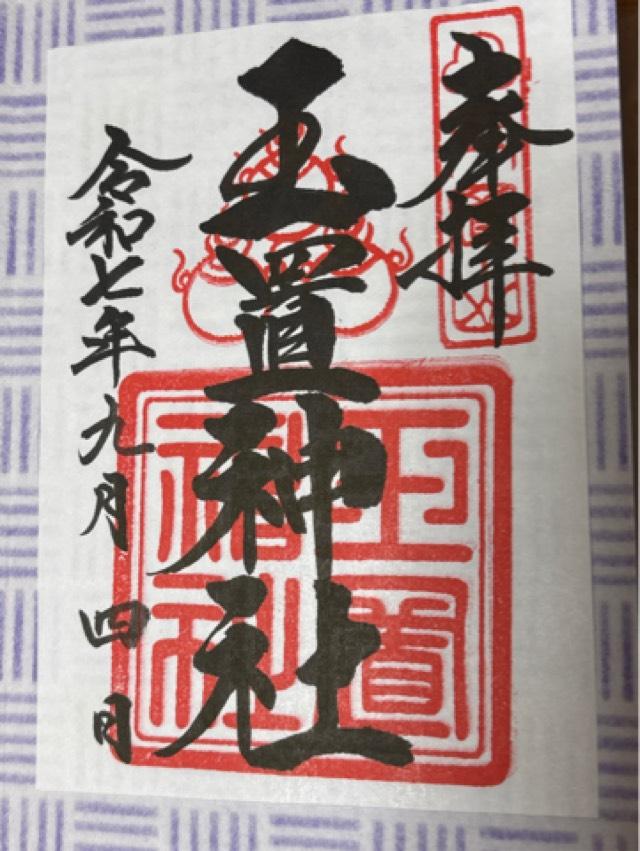 奉拝
玉置神社
玉置神社
令和七年九月四日